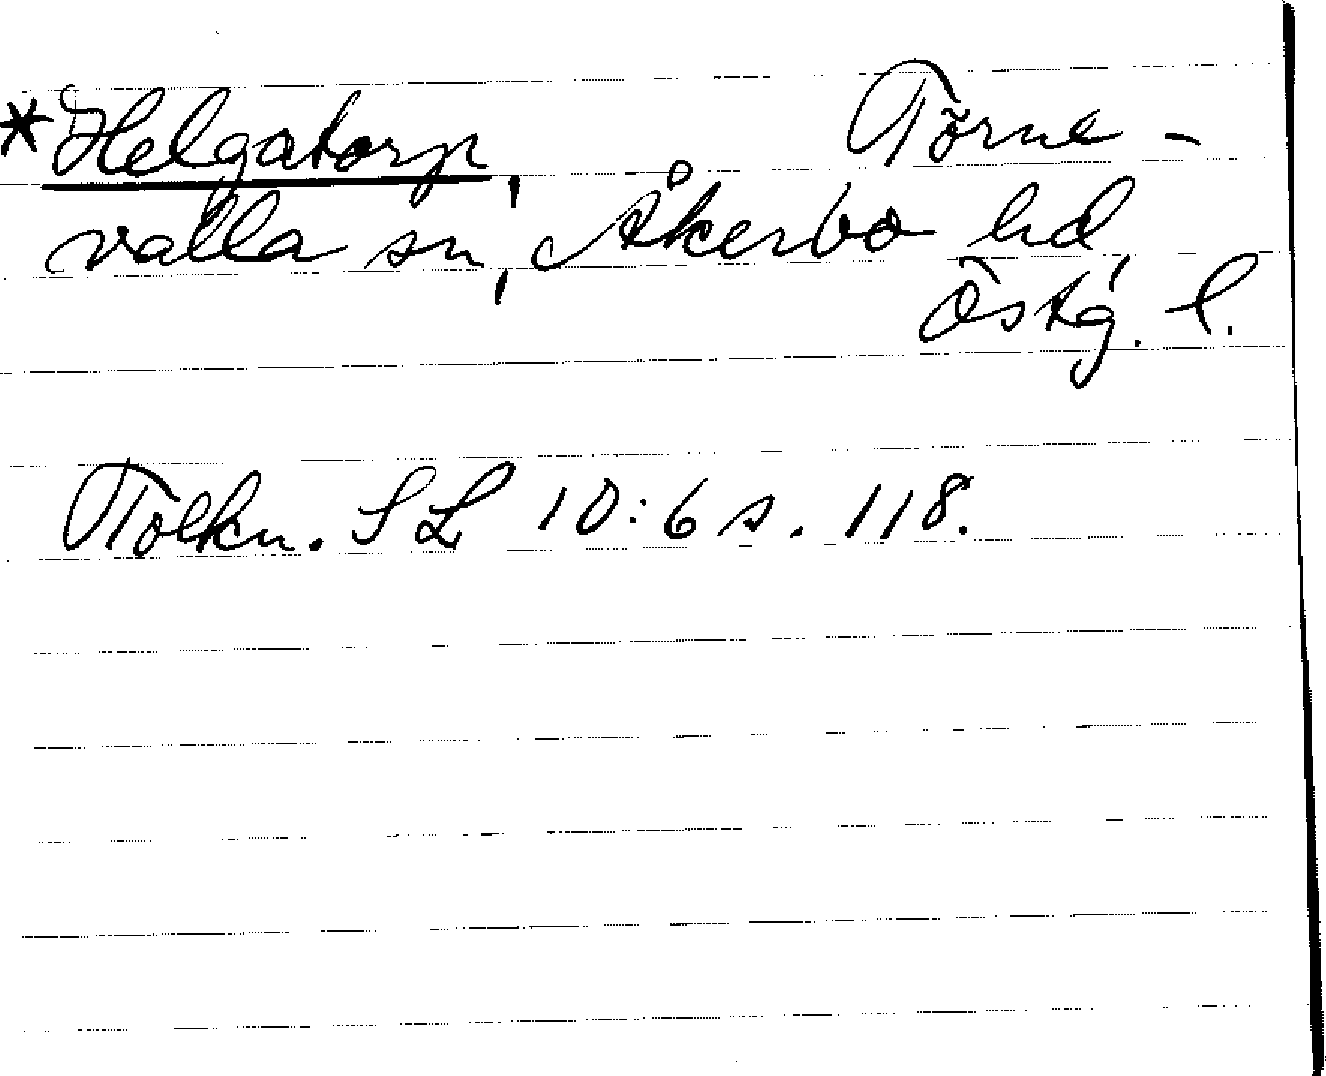 *Helgatorp, Törne-
valla sn, Åkerbo hd
Östg. l.
Tolkn. SL 10:6 s. 118.